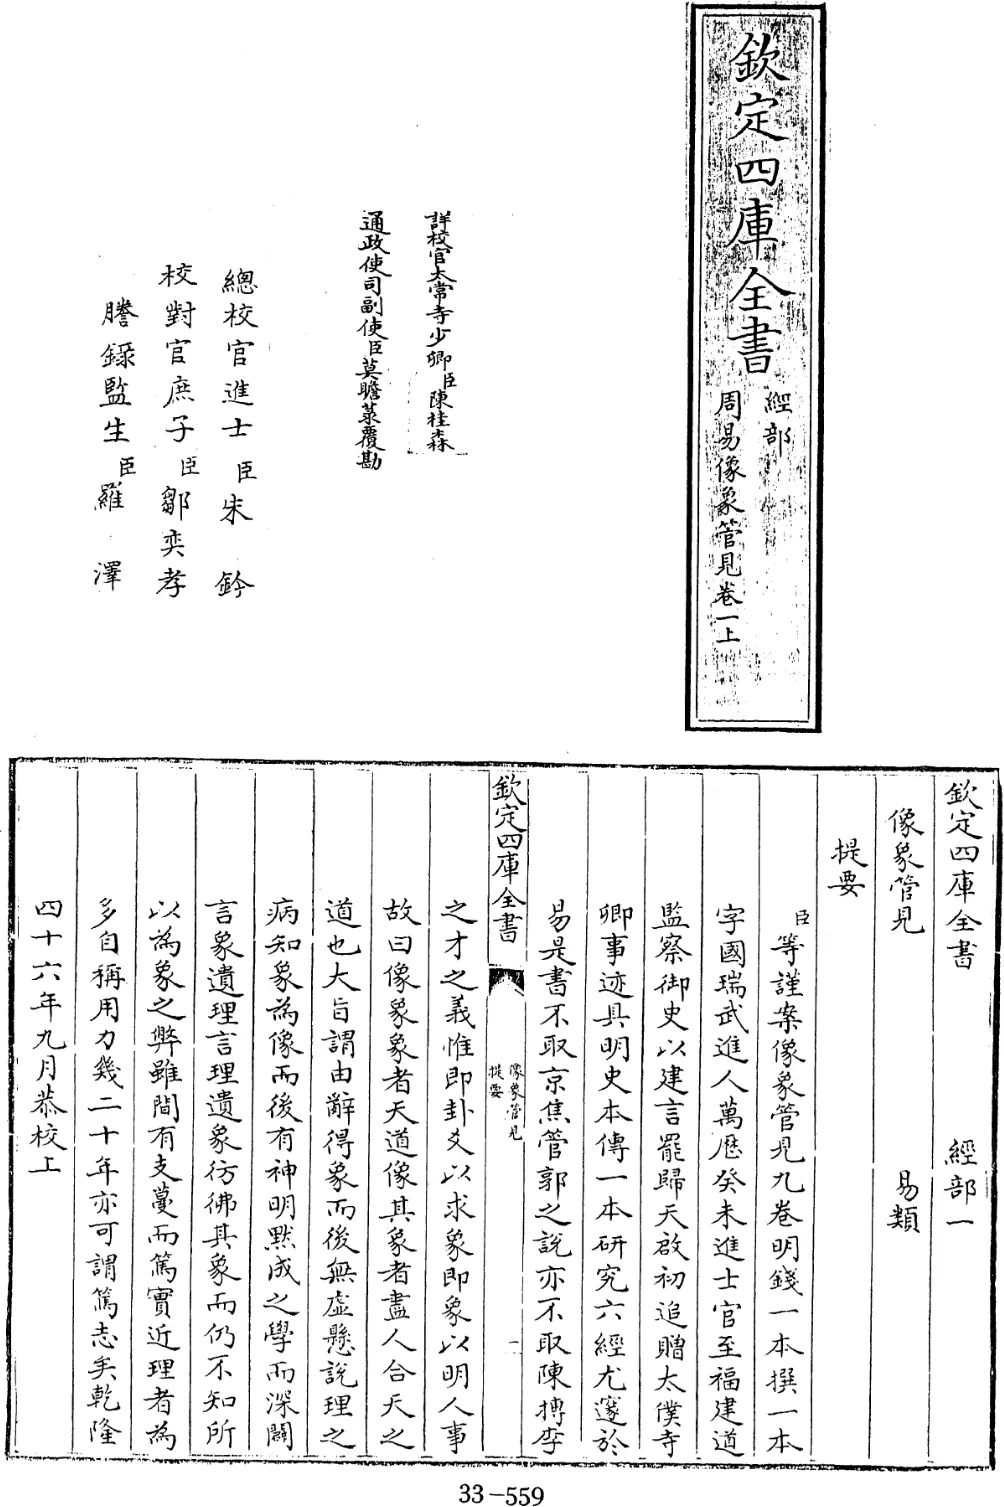 欽定四庫全書
經部
周易像象管見卷一上
詳校官太常寺少卿臣陳桂森
通政使司副使臣莫瞻菉覆勘
總校官進士臣朱鈐
校對官庶子臣鄒奕孝
謄錄監生臣羅澤
欽定四庫全書 經部一
像象管見 易類
提要
臣等謹案像象管見九卷明錢一本撰一本
字國瑞武進人萬厯癸未進士官至福建道
監察御史以建言罷歸天啟初追贈太僕寺
卿事迹具明史本傳一本研究六經尤邃於
易是書不取京焦管郭之說亦不取陳摶李
欽定四庫全書
像象管見
提要
一
之才之義惟即卦爻以求象即象以明人事
故曰像象象者天道像其象者盡人合天之
道也大旨謂由辭得象而後無虛懸說理之
病知象為像而後有神明默成之學而深闢
言象遺理言理遺象彷彿其象而仍不知所
以為象之弊雖間有支蔓而篤實近理者為
多自稱用力幾二十年亦可謂篤志矣乾隆
四十六年九月恭校上
33-559